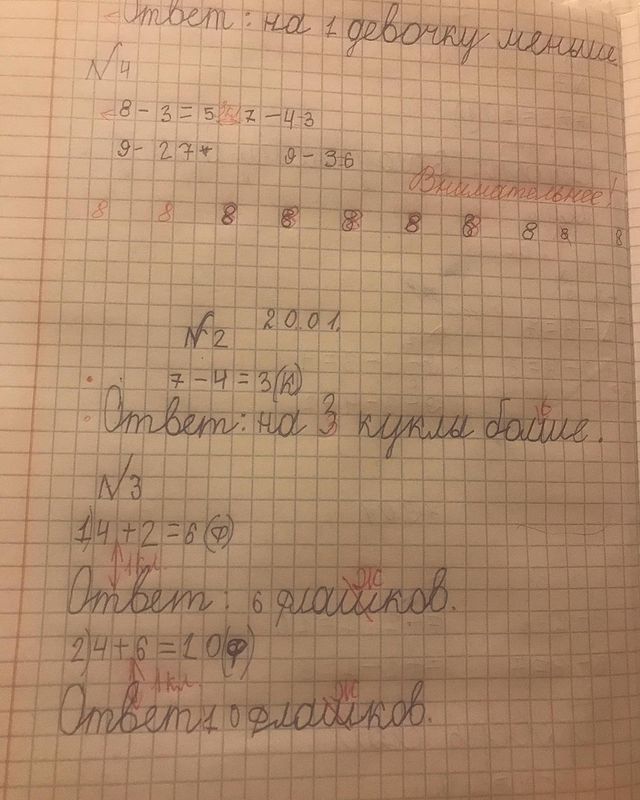 Ответ: на 1 девочку меньше
№4
8 - 3 = 5 7 - 4 3
9 - 2 7 9 - 3 6
Внимательнее!
8 8 8 8 8 8 8 8 8 8
№2 20.01.
7 - 4 = 3 (к)
Ответ: на 3 куклы болше.
№3
1) 4 + 2 = 6 (ф)
1 кл.
ж
Ответ: 6 флашков.
2) 4 + 6 = 10 (ф)
1 кл.
ж
Ответ 10 флашков.